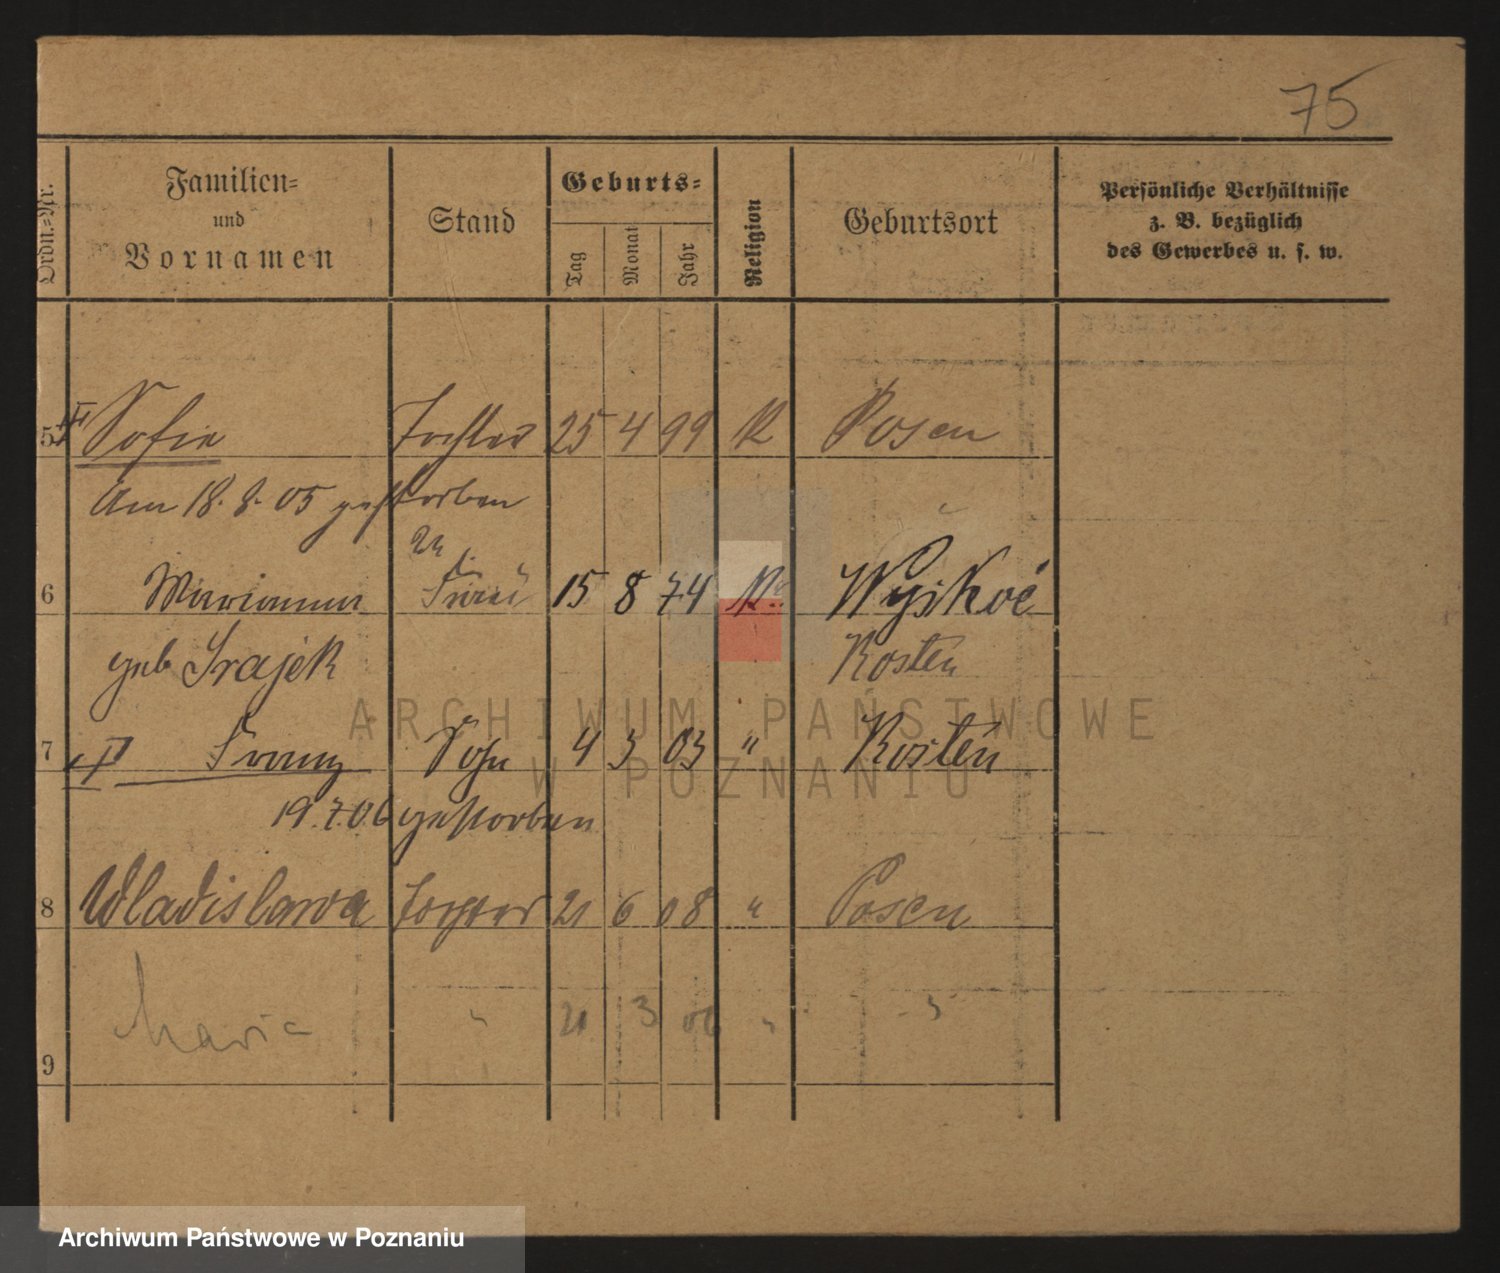 75
Ordn.-Nr. Familien- und Vornamen Stand Geburts- Tag Monat Jahr Religion Geburtsort Persönliche Verhältnisse z. B. bezüglich des Gewerbes u. s. w.
5 Sofie Tochter 25 4 99 K Posen
Am 18. 8. 05 gestorben
2te
6 Marianna Frau 15 8 74 K
geb Srajek Kosten
7 Franz Sohn 4 3 03 " Kosten
19.7.06 gestorben
8 Wladislawa Tochter 21 6 08 " Posen
Maria " 21 3 06 " "
9
ARCHIWUM PAŃSTWOWE
W POZNANIU
Archiwum Państwowe w Poznaniu